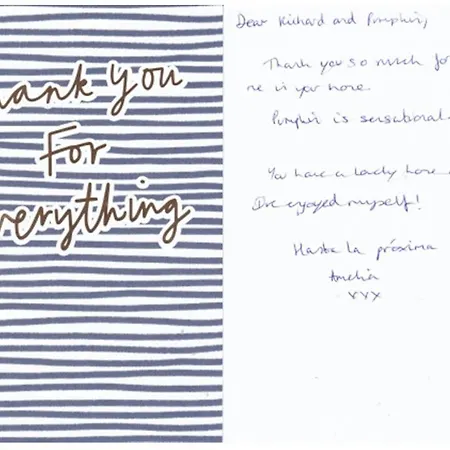 hank you
For
verything
Dear Richard and Pumpkin,
Thank you so much for
me in your home.
Pumpkin is sensational
You have a lovely home
I've enjoyed myself!
Hasta la próxima
Amelia
xxx